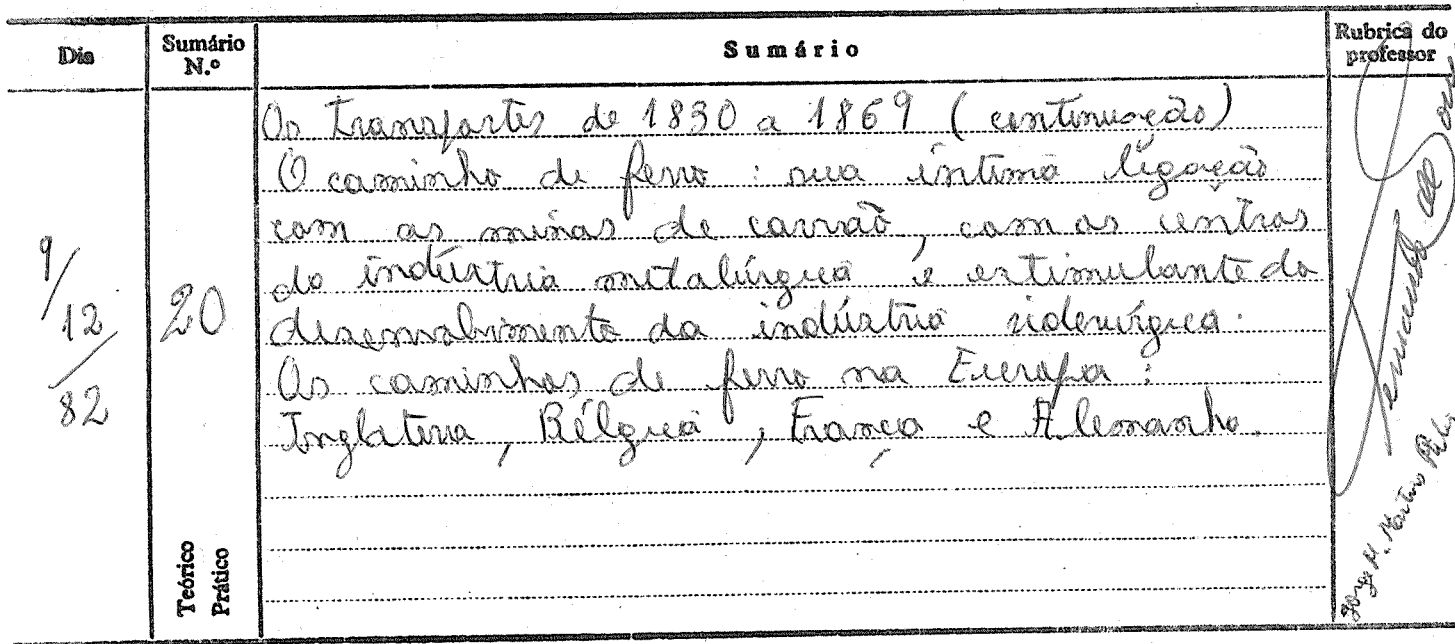 Dia
Sumário N.º
Sumário
Rubrica do professor
9/12/82
20
Os transportes de 1830 a 1869 (continuação)
O caminho de ferro : sua íntima ligação
com as minas de carvão, com os centros
da indústria metalúrgica e estimulante do
desenvolvimento da indústria siderúrgica.
Os caminhos de ferro na Europa :
Inglaterra, Bélgica, França e Alemanha.
Teórico
Prático
Fernando de
Jorge M. Martins